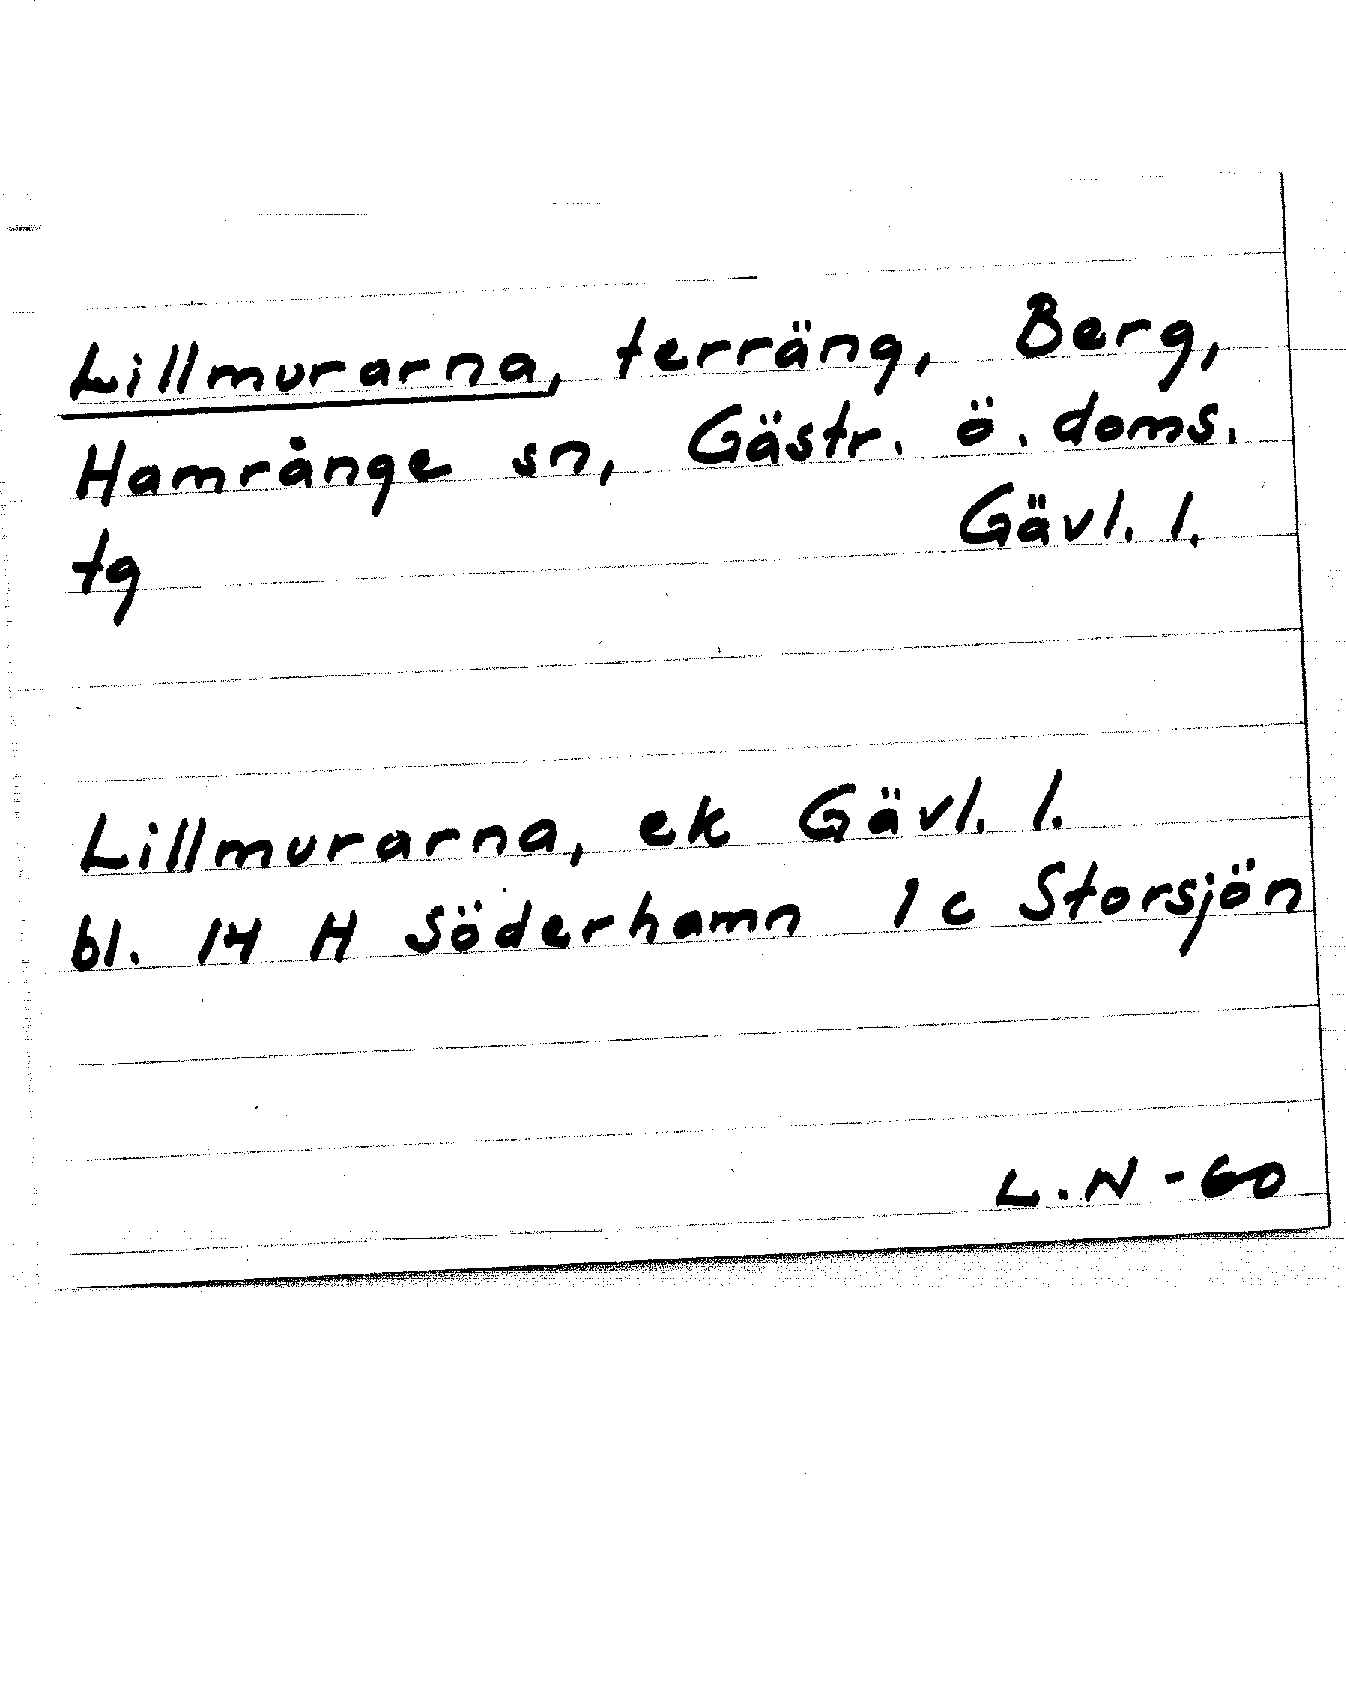 Lillmurarna, terräng, Berg,
Hamrånge sn, Gästr. ö. doms.
tg Gävl. l.
Lillmurarna, ek Gävl. l.
bl. 14 H Söderhamn 1 c Storsjön
L. N - 60